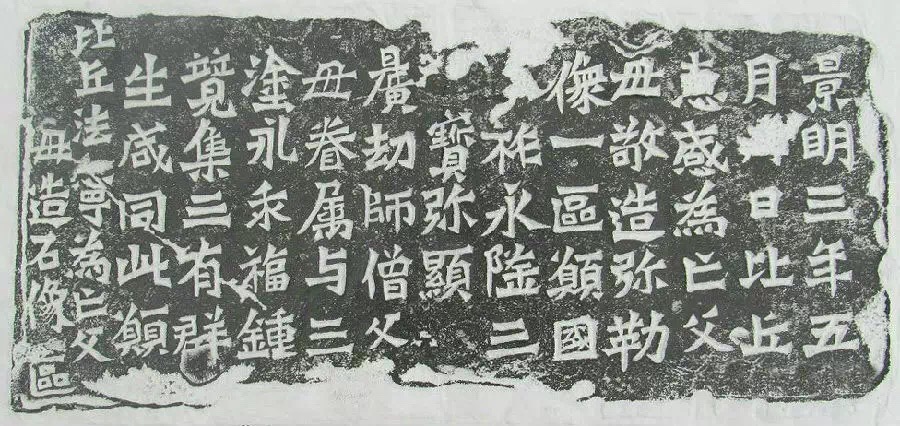 景明三年五
月日比丘
惠感為亡父
母敬造弥勒
像一區願國
祚永隆三
寶弥顯
曠劫師僧父
母眷属与三
塗永乖福鍾
競集三有群
生咸同此願
比丘法寧為亡父
母造石像區